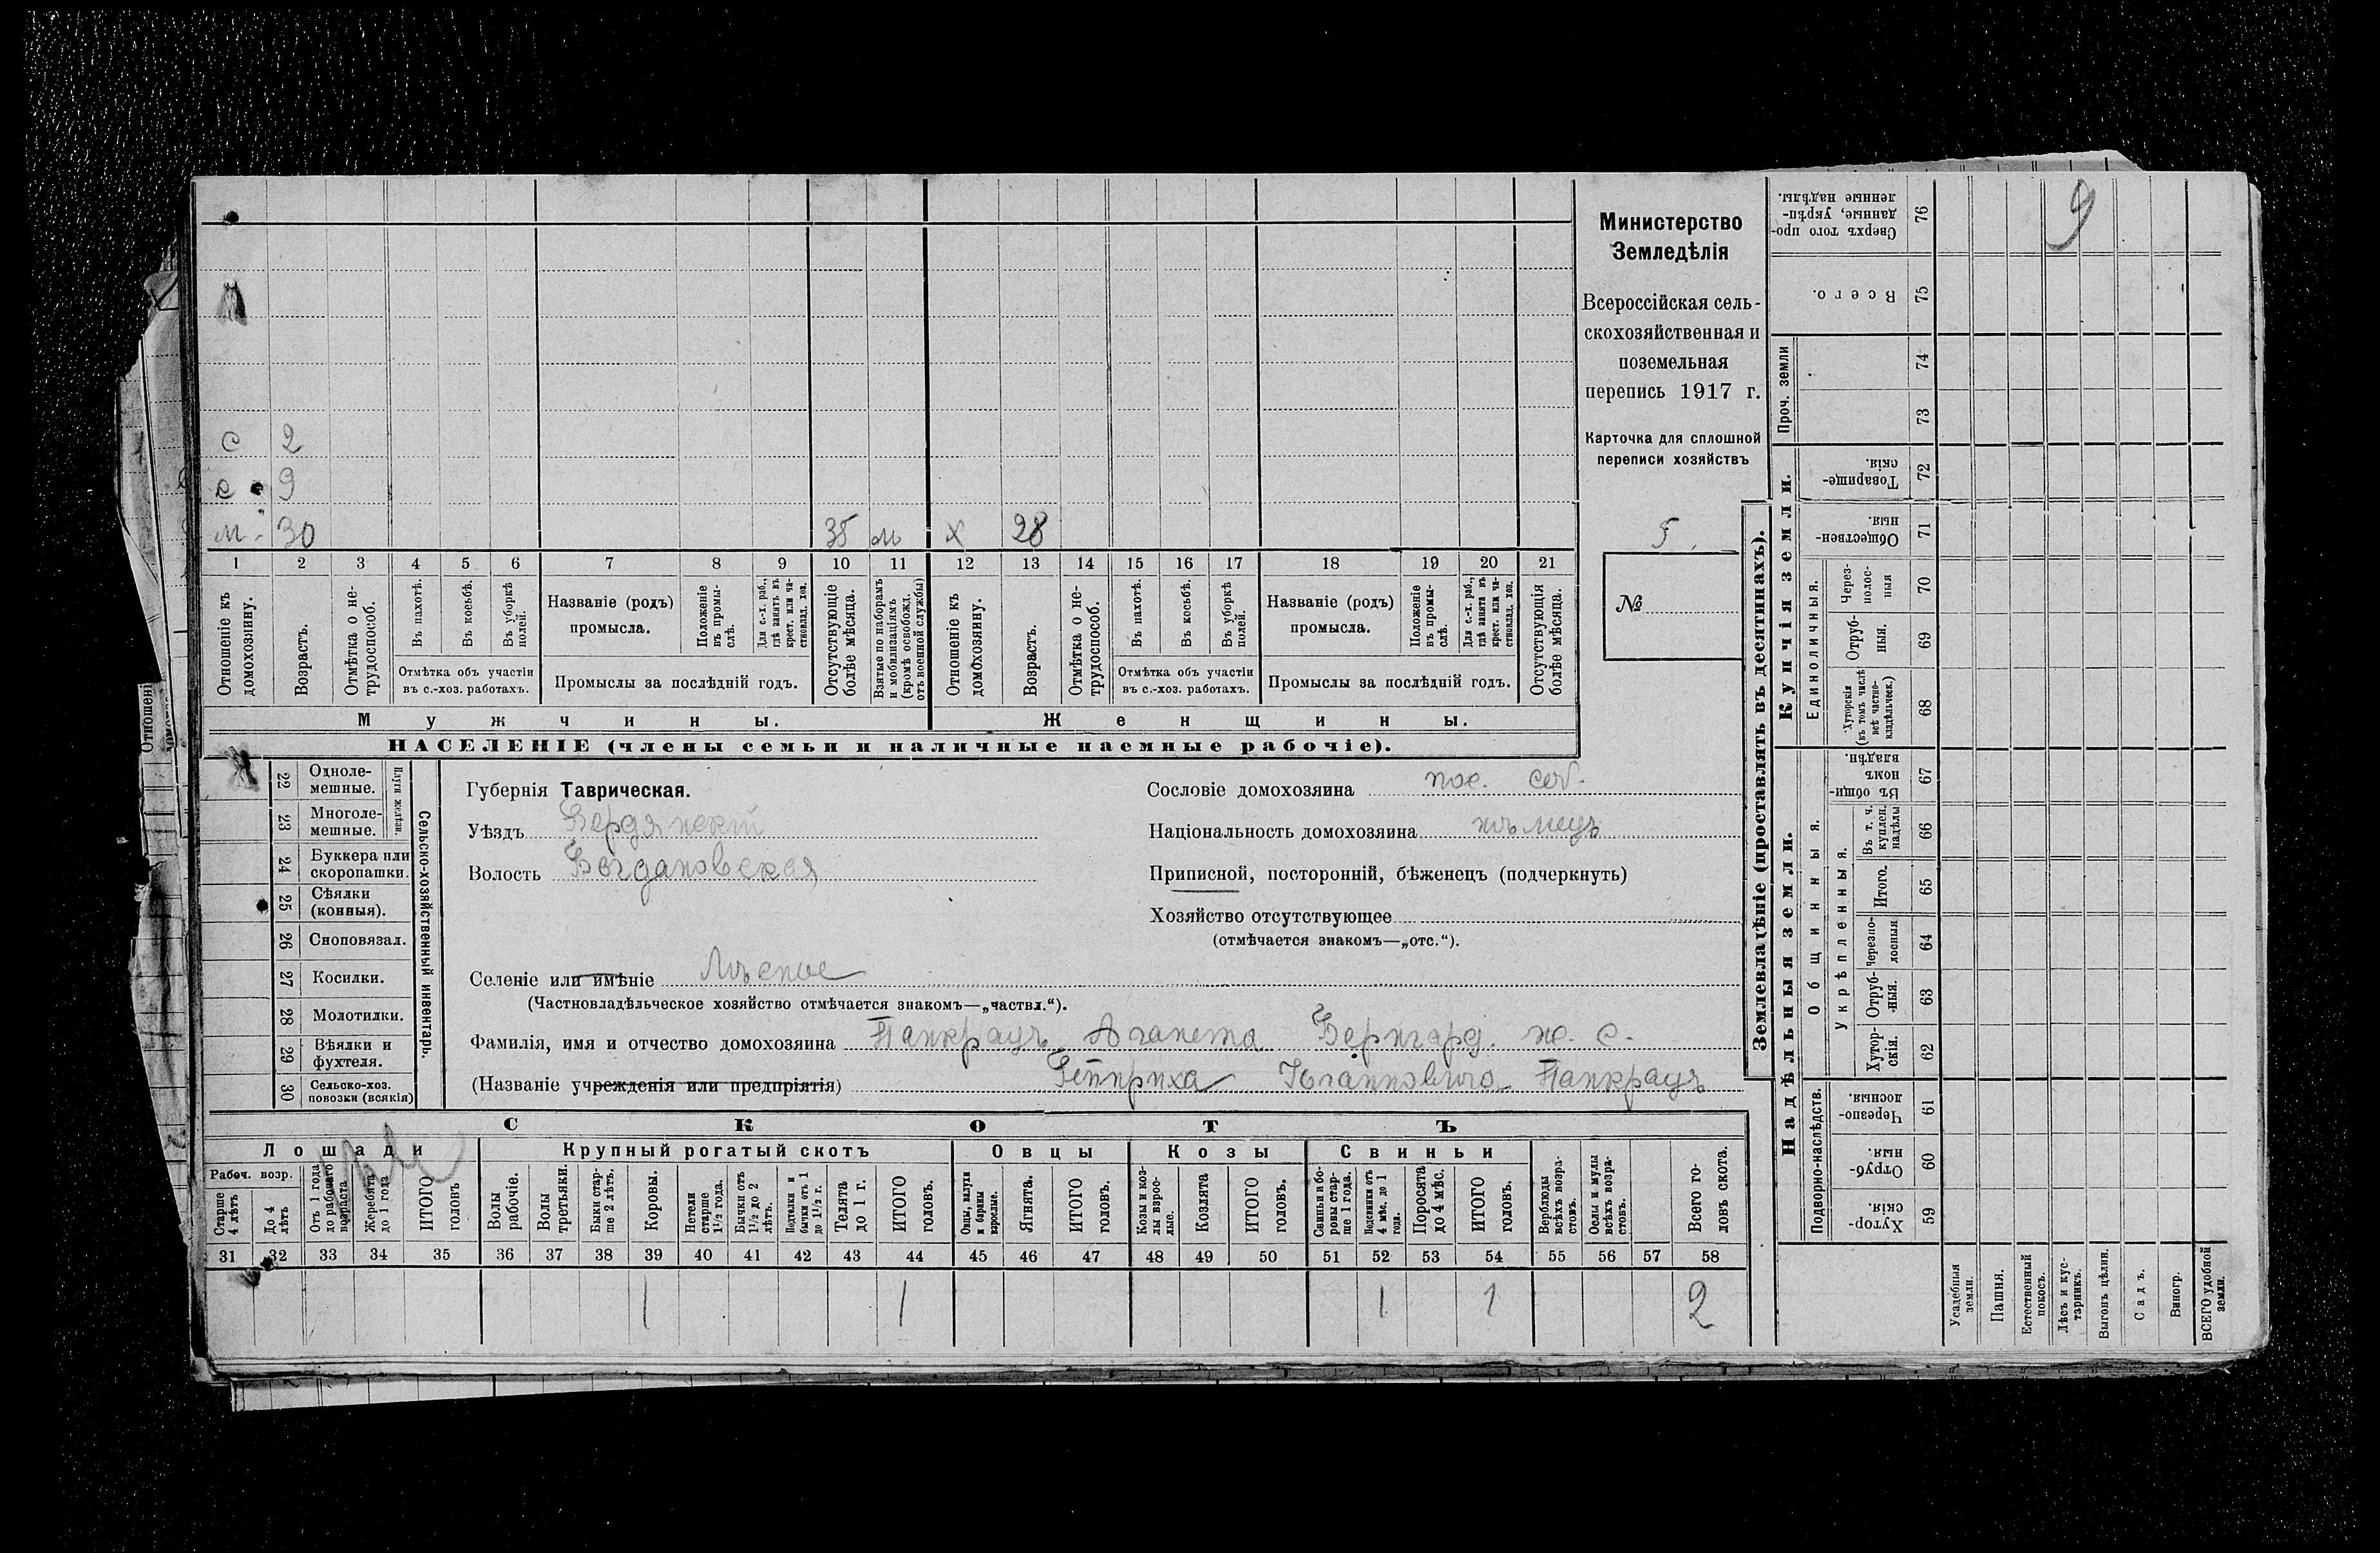 9
Министерство
Земледѣлія
Всероссійская сель-
скохозяйственная и
поземельная
перепись 1917 г.
Карточка для сплошной
переписи хозяйствъ
5
№
с 2
с 9
м 30 35 м х 28
1 2 3 4 5 6 7 8 9 10 11 12 13 14 15 16 17 18 19 20 21
Отношеніе къ домохозяину.
Возрастъ.
Отмѣтка о не-трудоспособ.
Въ пахотѣ.
Въ косьбѣ.
Въ уборкѣ полей.
Отмѣтка объ участіи
въ с.-хоз. работахъ.
Названіе (родъ)
промысла.
Положеніе въ промы-слѣ.
Для с.-х. раб., гдѣ занятъ въ крест. или ча-стновлад. хоз.
Промыслы за послѣдній годъ.
Отсутствующіе болѣе мѣсяца.
Взятые по наборамъ и мобилизаціямъ (кромѣ освобожд. отъ военной службы)
Отношеніе къ домохозяину.
Возрастъ.
Отмѣтка о не-трудоспособ.
Въ пахотѣ.
Въ косьбѣ.
Въ уборкѣ полей.
Отмѣтка объ участіи
въ с.-хоз. работахъ.
Названіе (родъ)
промысла.
Положеніе въ промы-слѣ.
Для с.-х. раб., гдѣ занята въ крест. или ча-стновлад. хоз.
Промыслы за послѣдній годъ.
Отсутствующія болѣе мѣсяца.
Мужчины. Женщины.
НАСЕЛЕНІЕ (члены семьи и наличные наемные рабочіе).
22 Одноле-мешные.
23 Многоле-мешные.
Плуги желѣзн.
24 Буккера или скоропашки.
25 Сѣялки (конныя).
26 Сноповязал.
27 Косилки.
28 Молотилки.
29 Вѣялки и фухтеля.
30 Сельско-хоз. повозки (всякія)
Сельско-хозяйственный инвентарь.
Губернія Таврическая.
Уѣздъ Бердянскій
Волость Богдановская
Сословіе домохозяина пос. соб.
Національность домохозяина нѣмецъ
Приписной, посторонній, бѣженецъ (подчеркнуть)
Хозяйство отсутствующее
(отмѣчается знакомъ—„отс.“).
Селеніе или имѣніе Лѣсное
(Частновладѣльческое хозяйство отмѣчается знакомъ—„частвл.“).
Фамилія, имя и отчество домохозяина Панкрацъ Аганета Бернгард. ж. с.
(Названіе учрежденія или предпріятія) Гейнриха Іоганновича Панкрацъ
СКОТЪ
Лошади Крупный рогатый скотъ Овцы Козы Свиньи
Рабоч. возр.
Старше 4 лѣтъ
До 4 лѣтъ
Отъ 1 года до рабочаго возраста
Жеребята до 1 года
ИТОГО головъ
Волы рабочіе.
Волы третьяки.
Быки стар-ше 2 лѣтъ.
Коровы.
Нетели старше 1½ года.
Бычки отъ 1½ до 2 лѣтъ.
Подтелки и бычки отъ 1 до 1½ г.
Телята до 1 г.
ИТОГО головъ.
Овцы, валухи и бараны взрослые.
Ягнята.
ИТОГО головъ.
Козы и коз-лы взрос-лые.
Козлята
ИТОГО головъ.
Свиньи и бо-ровы стар-ше 1 года.
Подсвинки отъ 4 мѣс. до 1 года.
Поросята до 4 мѣс.
ИТОГО головъ.
Верблюды всѣхъ возра-стовъ.
Ослы и мулы всѣхъ возра-стовъ.
Всего го-ловъ скота.
31 32 33 34 35 36 37 38 39 40 41 42 43 44 45 46 47 48 49 50 51 52 53 54 55 56 57 58
1 1 1 1 2
Землевладѣніе (проставлять въ десятинахъ).
Купчія земли.
Надѣльныя земли.
Сверхъ того про-данные, укрѣп-ленные надѣлы. 76
Всего. 75
Проч. земли
74
73
Товарище-скія. 72
Обществен-ныя. 71
Единоличныя.
Через-полос-ныя 70
Отруб-ныя. 69
Хуторскія (въ томъ числѣ всѣ частно-владѣльческ.) 68
Общинныя.
Въ общи-номъ владѣн. 67
Укрѣпленныя.
Въ т. ч. куплен. надѣлы 66
Итого. 65
Черезпо-лосныя 64
Отруб-ныя. 63
Хутор-скія. 62
Подворно-наслѣдств.
Черезпо-лосныя. 61
Отруб-ныя. 60
Хутор-скія. 59
Усадебныя земли.
Пашня.
Естественный покосъ.
Лѣсъ и кус-тарникъ.
Выгонъ цѣлин.
Садъ.
Виногр.
ВСЕГО удобной земли.